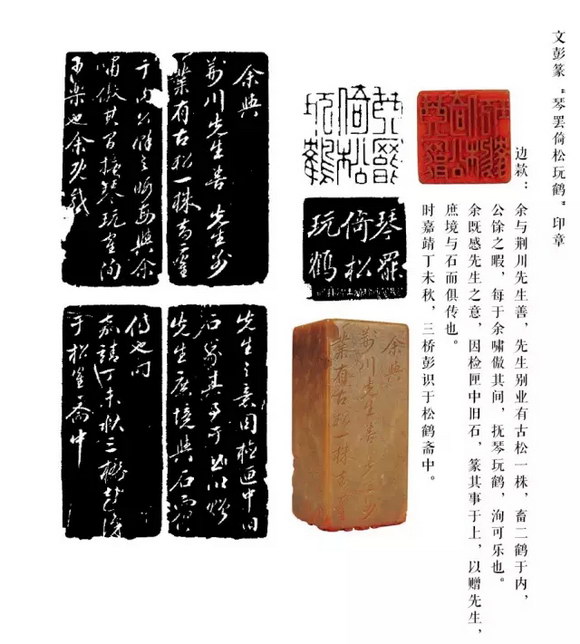 文彭篆“琴罢倚松玩鹤”印章
边款：余与荆川先生善，先生别业有古松一株，畜二鹤于内，
公馀之暇，每于余啸傲其间，抚琴玩鹤，洵可乐也。
余既感先生之意，因检匣中旧石，篆其事于上，以赠先生，
庶境与石而俱传也。
时嘉靖丁未秋，三桥彭识于松鹤斋中。
琴罷
倚松
玩鶴
琴罷
倚松
玩鶴
琴罷
倚松
玩鶴
余與
荆川先生善先生别
業有古松一株畜二鶴
于内公餘之暇每與余
嘯傲其間撫琴玩鶴洵
可樂也余既感
先生之意因檢匣中舊
石篆其事于上以贈
先生庶境與石而俱
傳也时
嘉靖丁未秋三橋彭識
于松鶴斋中
余與
荆川先生善先生别
業有古松一株畜二